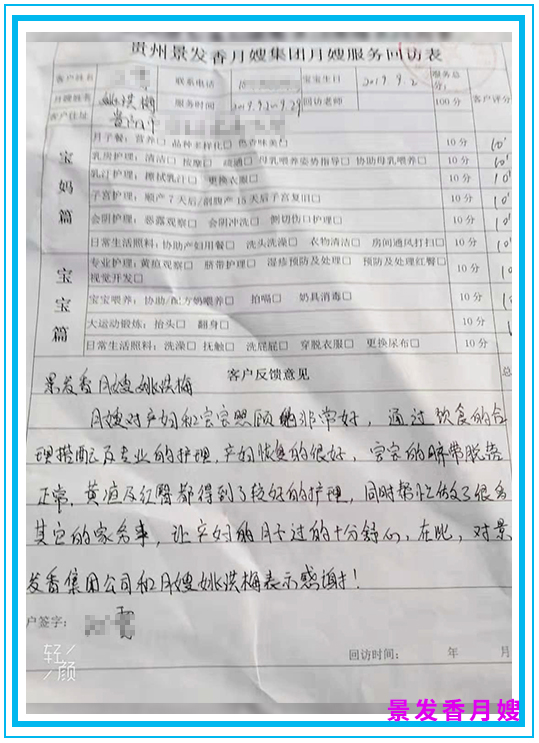 贵州景发香月嫂集团月嫂服务回访表
客户姓名 联系电话 宝宝生日 2019.9.2 服务总分： 客户评分
月嫂姓名 姚洪梅 服务时间 2019.9.2 9.29 回访老师 100分
客户住址 贵阳市
宝妈篇
月子餐：营养□ 品种多样化□ 色香味美□ 10分 10'
乳房护理：清洁□ 按摩□ 疏通□ 母乳喂养姿势指导□ 协助母乳喂养□ 10分 10'
乳汁护理：擦拭乳汁□ 更换衣服□ 10分 10'
子宫护理：顺产7天后/剖腹产15天后子宫复旧□ 10分 10'
会阴护理：恶露观察□ 会阴冲洗□ 侧切伤口护理□ 10分 10'
日常生活照料：协助产妇用餐□ 洗头洗澡□ 衣物清洁□ 房间通风打扫□ 10分 10'
宝宝篇
专业护理：黄疸观察□ 脐带护理□ 湿疹预防及处理□ 预防及处理红臀□
视觉开发□ 10分
宝宝喂养：协助/配方奶喂养□ 拍嗝□ 奶具消毒□ 10分
大运动锻炼：抬头□ 翻身□ 10分
日常生活照料：洗澡□ 抚触□ 洗屁屁□ 穿脱衣服□ 更换尿布□ 10分
客户反馈意见 总
景发香月嫂姚洪梅
月嫂对产妇和宝宝照顾的非常好，通过饮食的合
理搭配及专业的护理，产妇恢复的很好，宝宝的脐带脱落
正常，黄疸及红臀都得到了较好的护理，同时帮忙做了很多
其它的家务事，让产妇的月子过的十分舒心，在此，对景
发香集团公司和月嫂姚洪梅表示感谢！
户签字：
回访时间： 年 月
轻颜
景发香月嫂